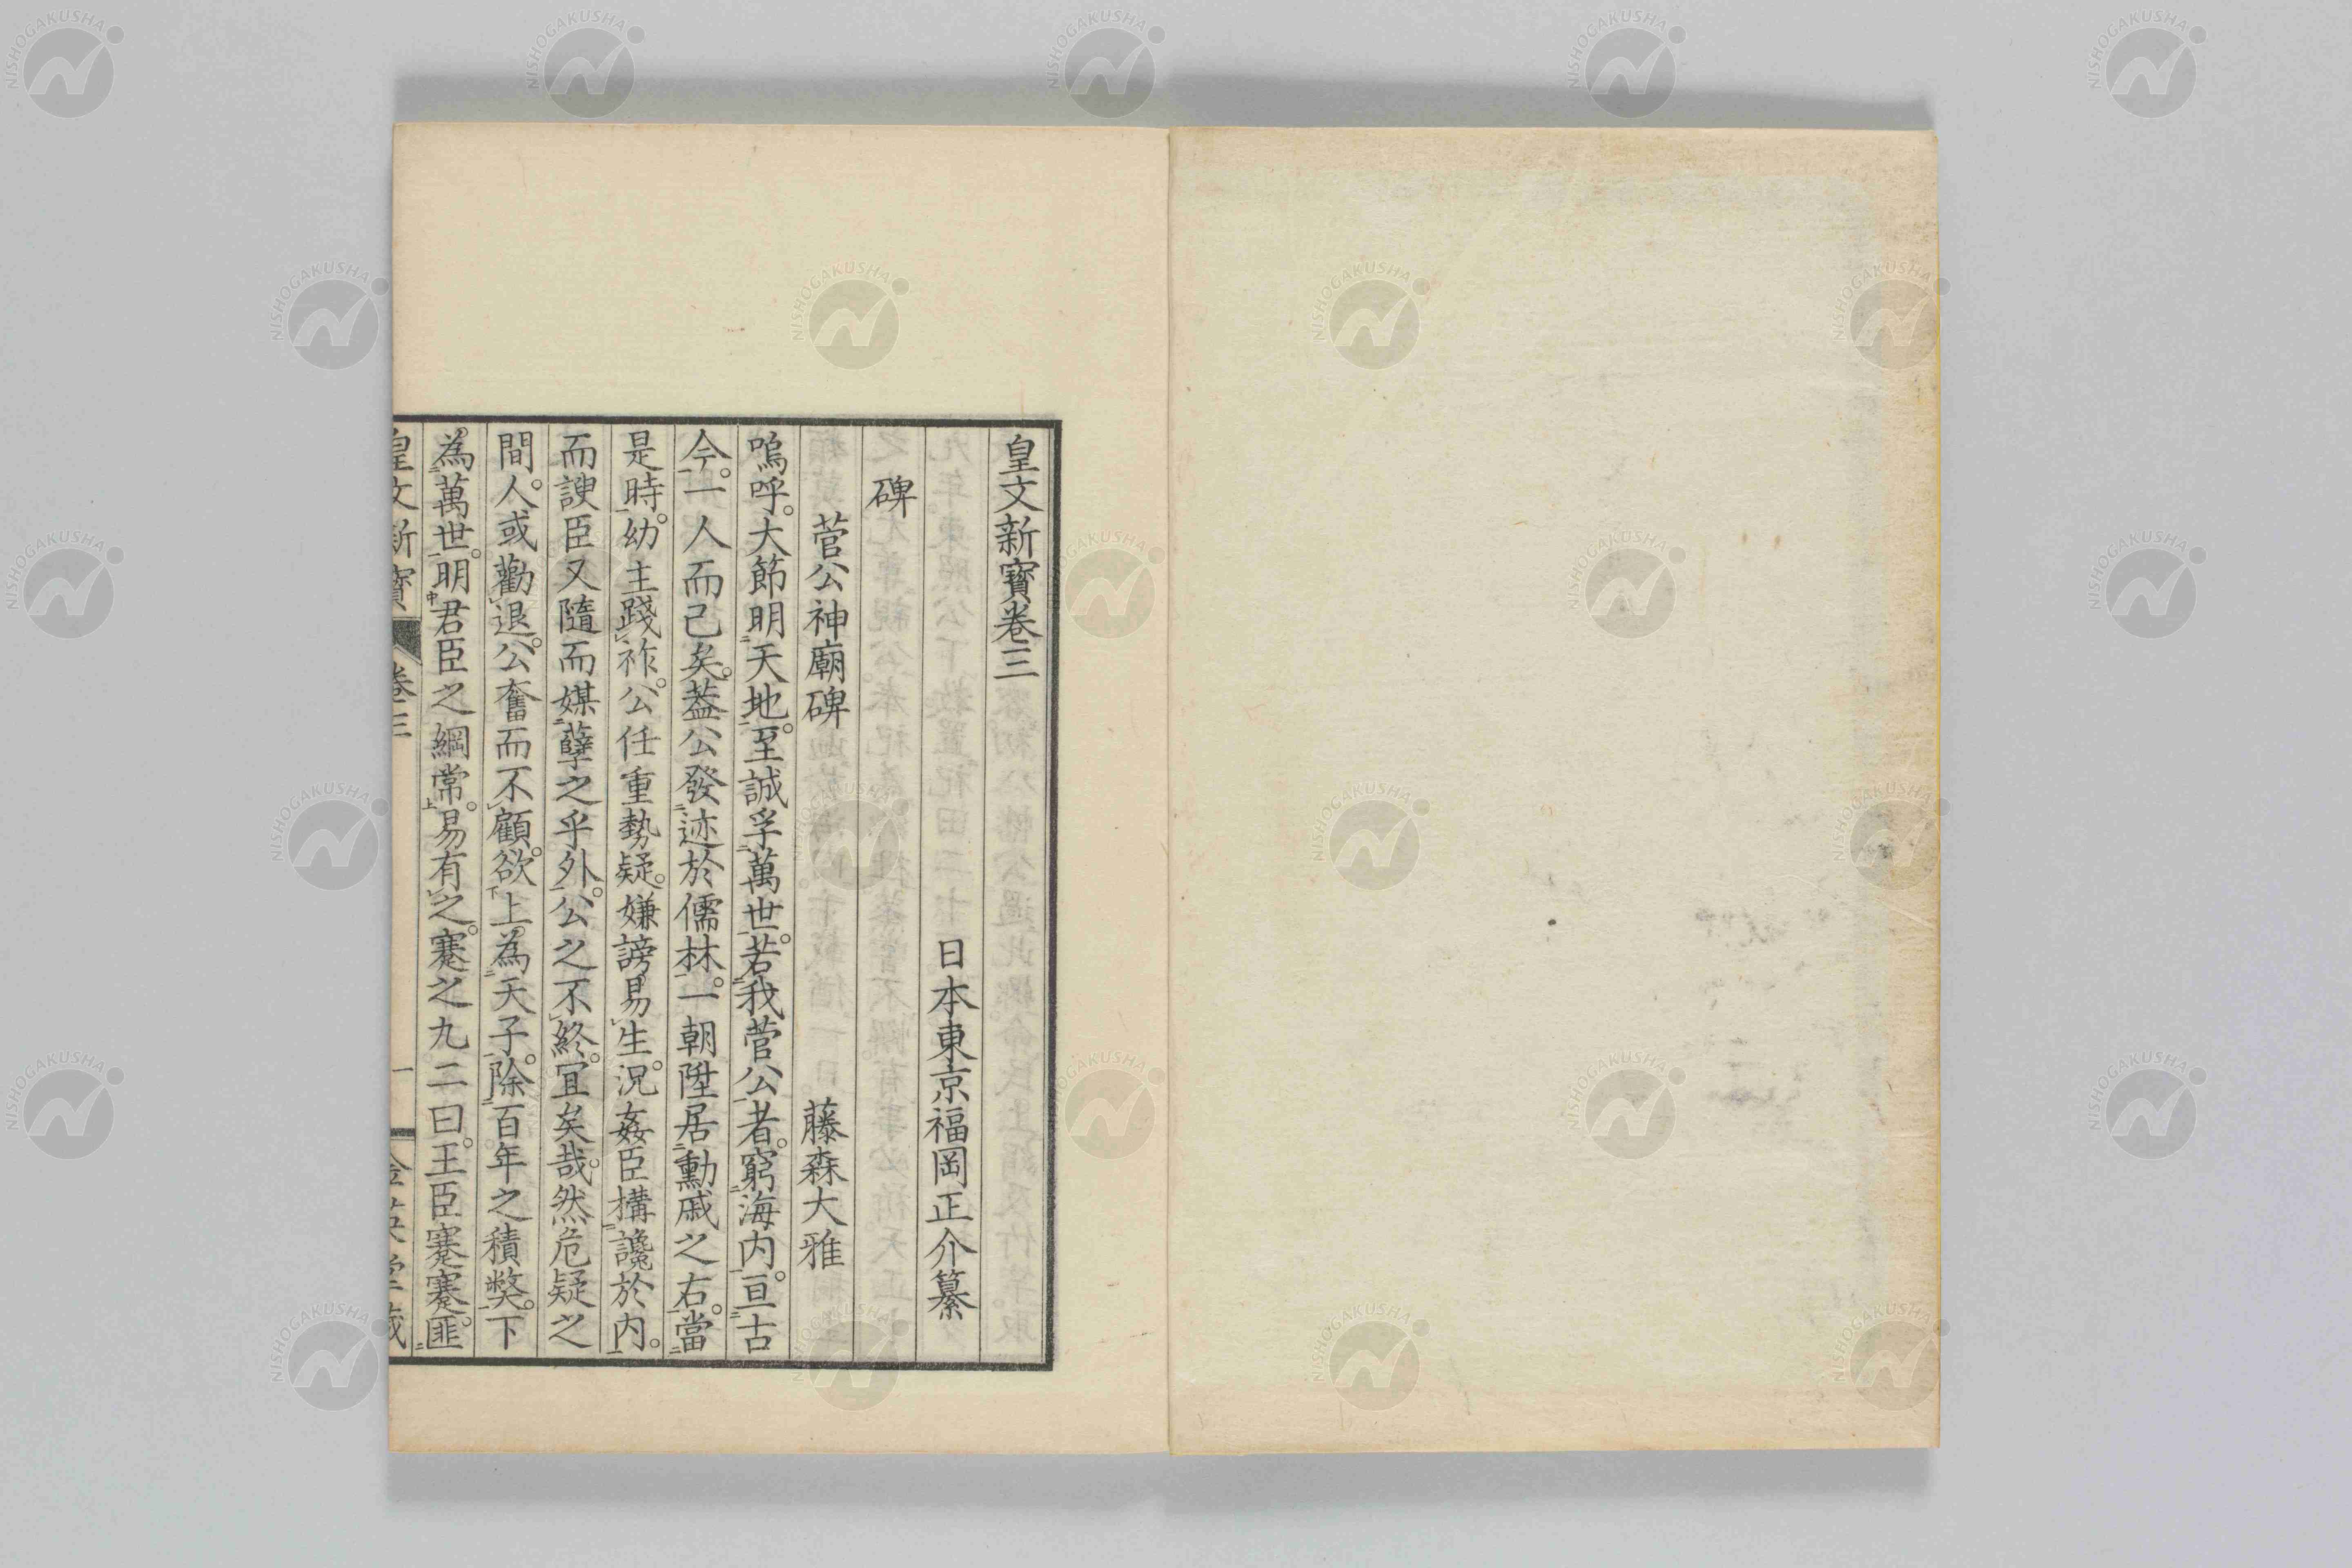 皇文新寶卷三
日本東京福岡正介纂
碑
菅公神廟碑 藤森大雅
嗚呼。大節明天地。至誠孚萬世。若我菅公者。窮海内。亘古
今。一人而已矣。蓋公發迹於儒林。一朝陞居勳戚之右。當
是時。幼主踐祚。公任重勢疑。嫌謗易生。況姦臣搆讒於内。
而諛臣又隨而媒孽之乎外。公之不終。冝矣哉。然危疑之
間。人或勸退。公奮而不顧。欲上爲天子。除百年之積弊。下
爲萬世。明君臣之綱常。易有之。蹇之九二曰。王臣蹇蹇。匪
皇文新寶 卷三 一
NISHOGAKUSHA